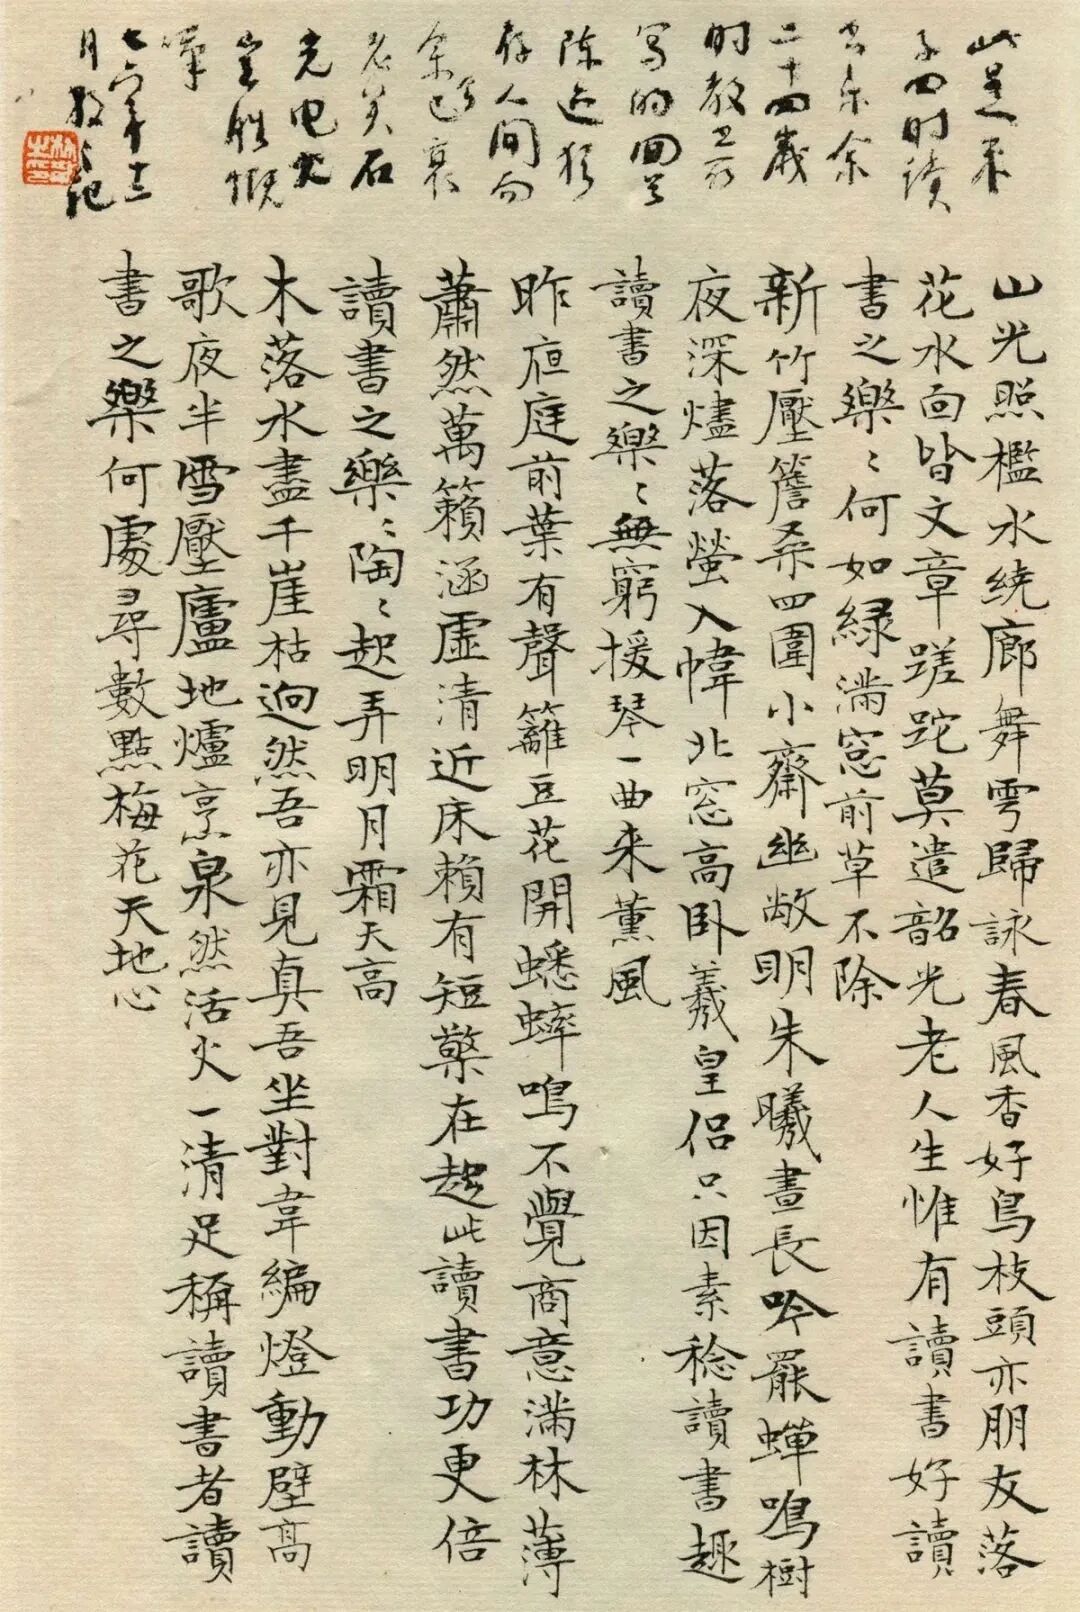 此是朱
子四时读
书乐余
二十四岁
时教
写的回首
陈迹犹
存人间而
余已衰
老矣石
光电火
岂胜慨
嘆
七六年十二
月散之记
山光照檻水繞廊舞雩歸詠春風香好鳥枝頭亦朋友落
花水面皆文章蹉跎莫遣韶光老人生惟有讀書好讀
書之樂〻何如綠滿窓前草不除
新竹壓簷桑四圍小齋幽敞明朱曦晝長吟罷蟬鳴樹
夜深燼落螢入幃北窓高卧羲皇侣只因素稔讀書趣
讀書之樂〻無窮援琴一曲来薰風
昨夜庭前葉有聲籬豆花開蟋蟀鳴不覺商意滿林薄
蕭然萬籟涵虛清近床賴有短檠在趂此讀書功更倍
讀書之樂〻陶〻起弄明月霜天高
木落水盡千崖枯迥然吾亦見真吾坐對韋編燈動壁高
歌夜半雪壓廬地爐烹泉然活火一清足稱讀書者讀
書之樂何處尋數點梅花天地心